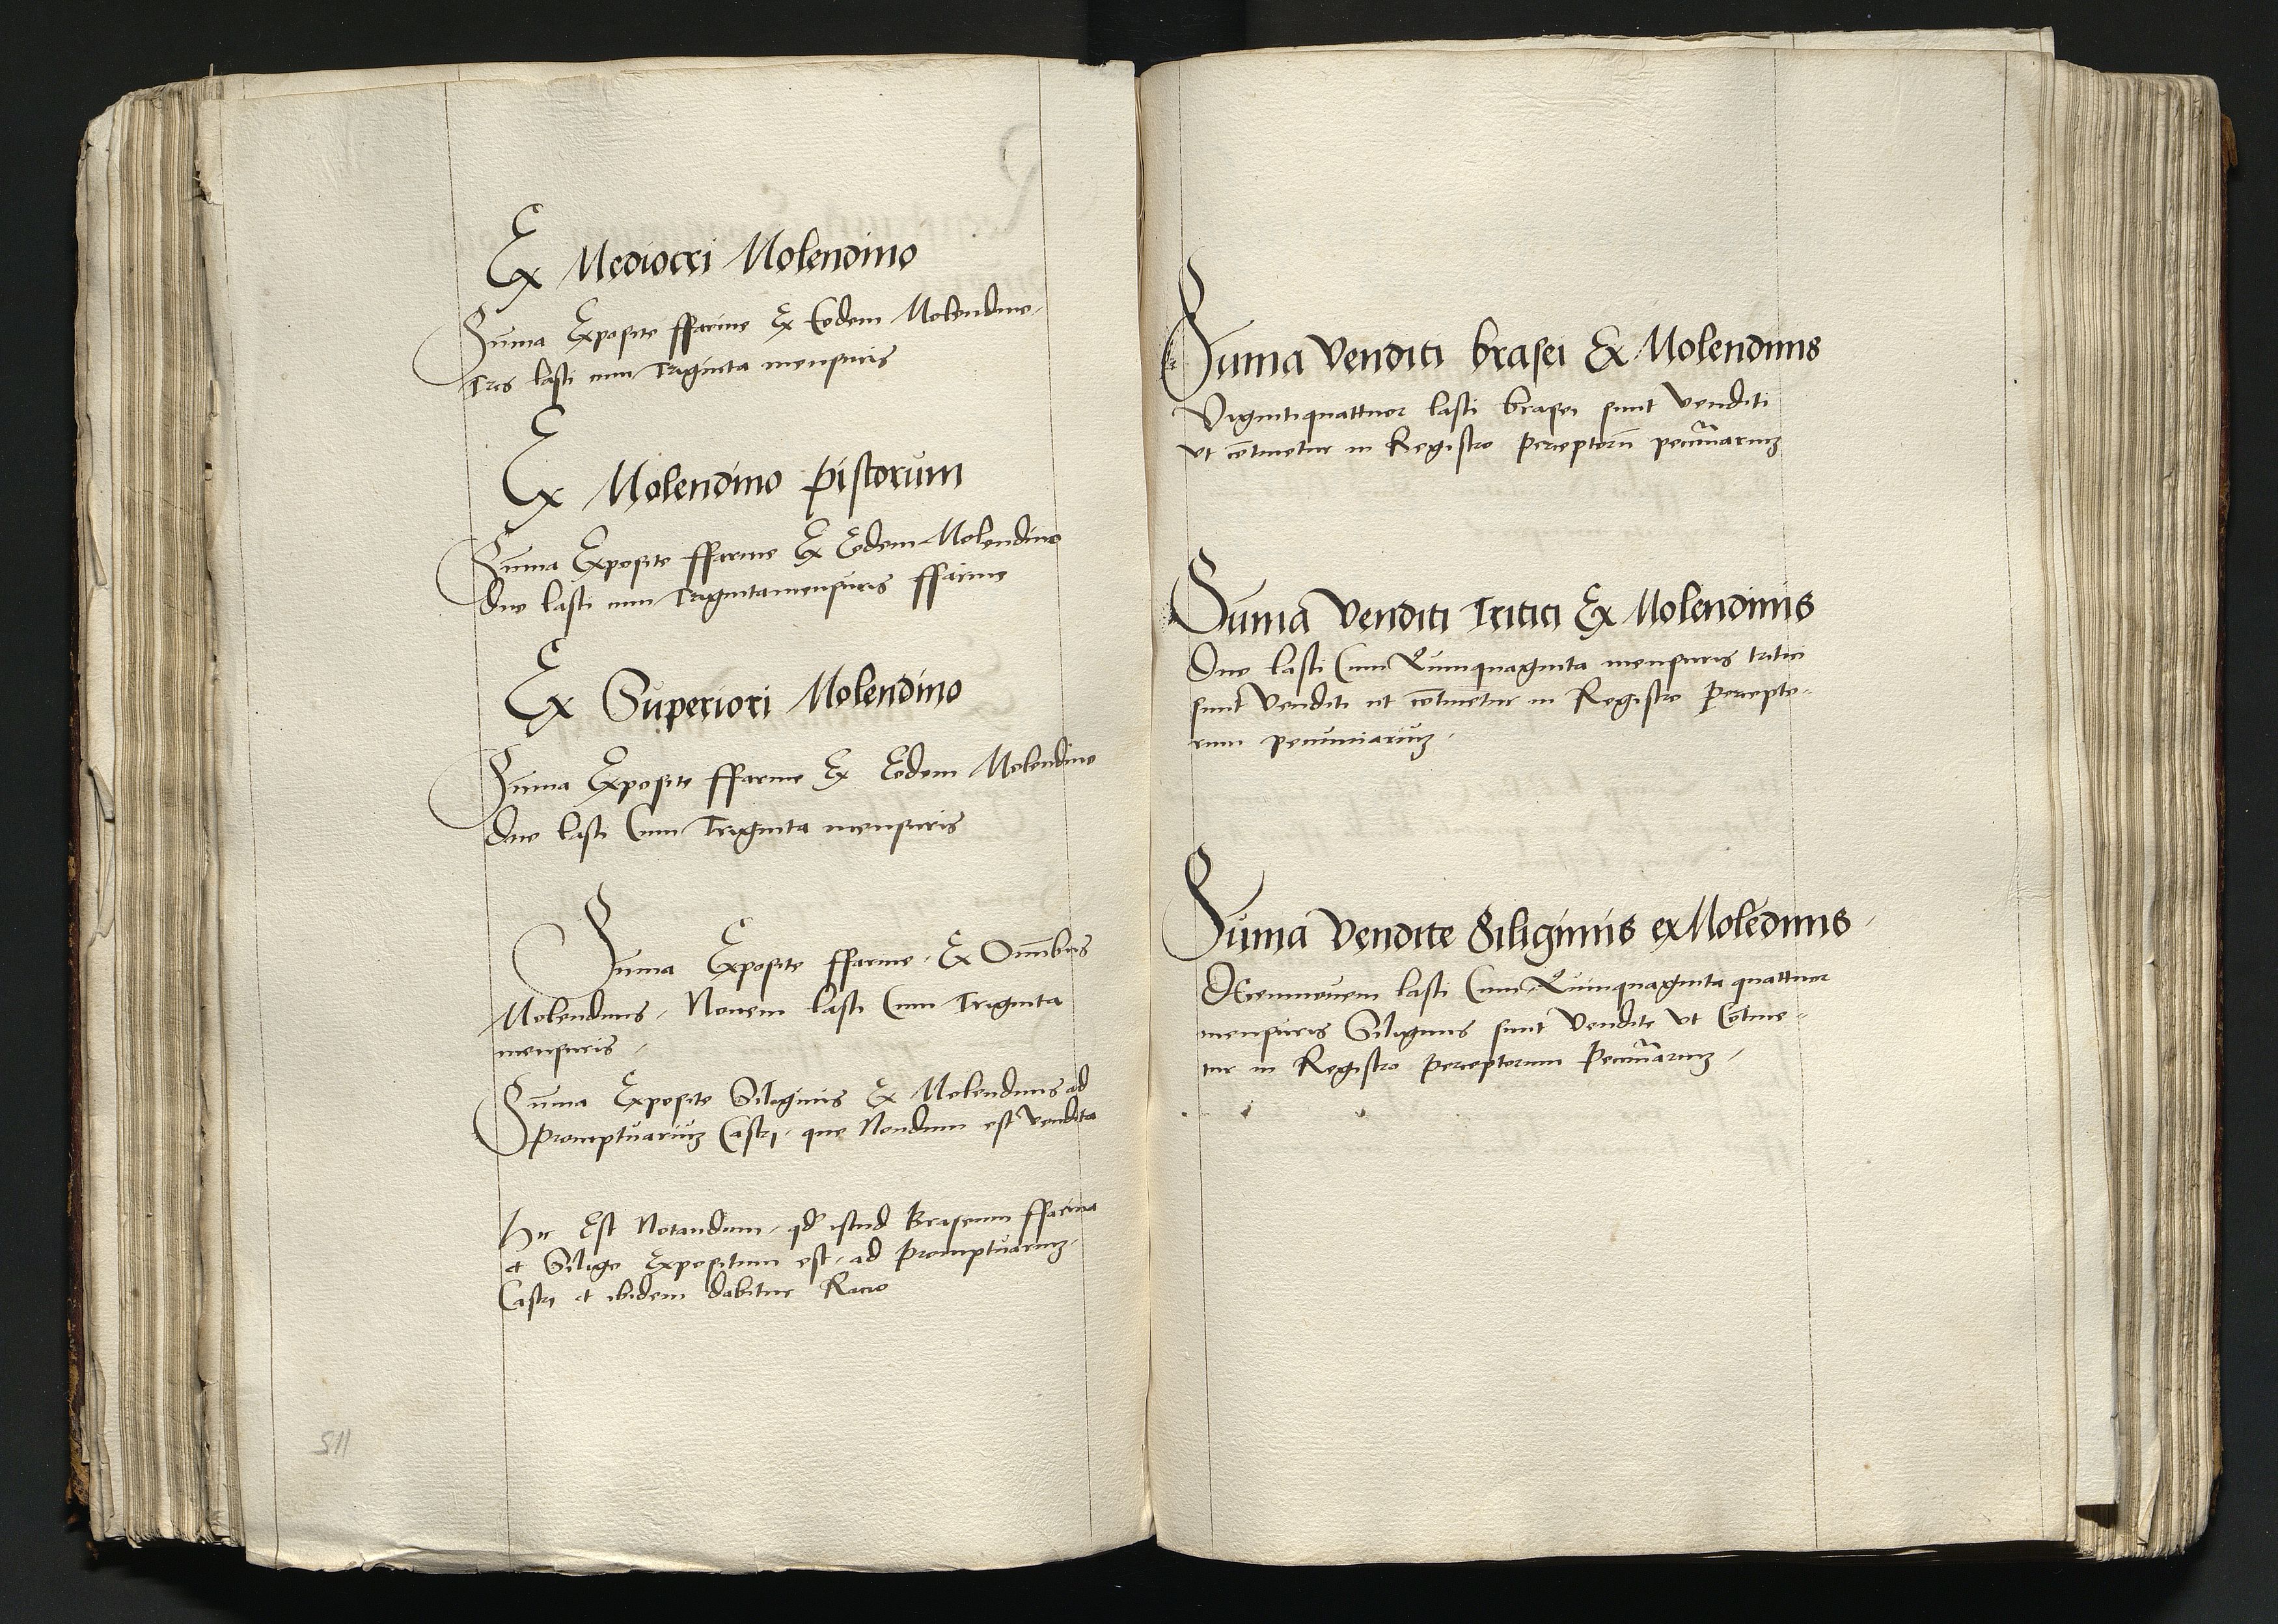 Ex Mediocri Molendino
Suma Exposite ffarine Ex Eodem Molendino
Tres lasti cum Triginta mensuris
Ex Molendino pistorum
Suma Exposite ffarine Ex Eodem Molendino
Due lasti cum Triginta mensuris ffarine
Ex Superiori Molendino
Suma Exposite ffarine Ex Eodem Molendino
Due lasti Cum Triginta mensuris
Suma Exposite ffarine, Ex Omībus
Molendinis, Novem lasti Cum Triginta
mensuris,
Sūma Exposite Siliginis Ex Molendinis ad
Promptuariuȝ Castri, que Nondum est vendita
Hic Est Notandum, qđ istud Braseum ffarina
et Siligo Expositum est, ad Promptuariuȝ,
Castri et ibidem dabitur Racio
511
Suma Venditi brasei Ex Molendinis
Vigintiquattuor lasti brasei sunt venditi
vt cōtinetur in Registro perceptorū pecuniaruȝ
Suma Venditi Tritici Ex Molendinis
Due lasti Cum Quinquaginta mensuris tritici
sunt Venditi ut cōtinetur in Registro percepto-
rum pecuniariuȝ.
Suma Vendite Siliginis ex Molēdinis.
Decemnovem lasti Cum Quinquaginta quattuor
mensuris Siliginis sunt Vendite vt Cōtine-
tur in Registro perceptorum Pecuniaruȝ,